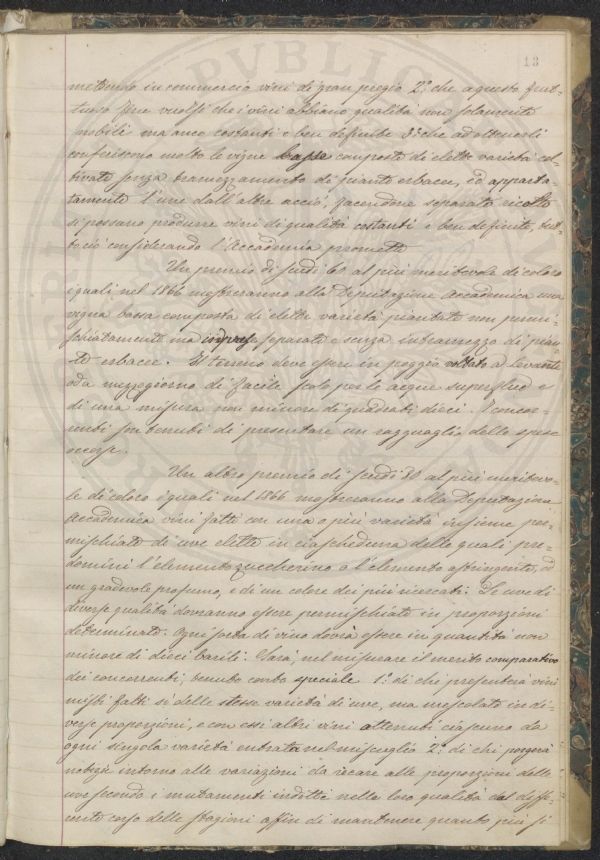 13
mettono in commercio vini di gran pregio 2º che a questo frut-
tuoso fine vuolsi che i vini abbiano qualità non solamente
nobili ma anco costanti e ben definite 3º che ad ottenerli
conferiscono molto le vigne basse composte di elette varietà col-
tivate senza tramezzamento di piante erbacee, ed apparta-
tamente l'une dall'altre acciò, facendone separate ricolte
si possano produrre vini di qualità costanti e ben definite, tut-
to ciò considerando l'Accademia promette
Un premio di scudi 60 al più meritevole di coloro
i quali nel 1866 mostreranno alla Deputazione Accademica una
vigna bassa composta di elette varietà piantate non permi-
schiatamente ma separate e senza intramezzo di pian-
te erbacee. Il terreno deve essere in poggio voltato a levante
o da mezzogiorno di facile scolo per le acque superflue e
di una misura non minore di quadrati dieci. I concor-
renti son tenuti di presentare un ragguaglio delle spese
occorse.
Un altro premio di scudi 30 al più meritevo-
le di coloro i quali nel 1866 mostreranno alla Deputazione
Accademica vini fatti con una o più varietà insieme per-
mischiate di uve elette in ciascheduna delle quali pre-
domini l'elemento zuccherino e l'elemento astringente, ed
un gradevole profumo, e di un colore dei più ricercati. Le uve di
diverse qualità dovranno essere permischiate in proporzioni
determinate. Ogni sorta di vino dovrà essere in quantità non
minore di dieci barili. Sarà, nel misurare il merito comparativo
dei concorrenti, tenuto conto speciale 1º di chi presenterà vini
misti fatti sì delle stesse varietà di uve, ma mescolate in di-
verse proporzioni, e con essi altri vini ottenuti ciascuno da
ogni singola varietà entrata nel miscuglio 2º di chi porgerà
notizie intorno alle variazioni da recare alle proporzioni delle
uve secondo i mutamenti indotti nelle loro qualità dal diffe-
rente corso delle stagioni affin di mantenere quanto più si